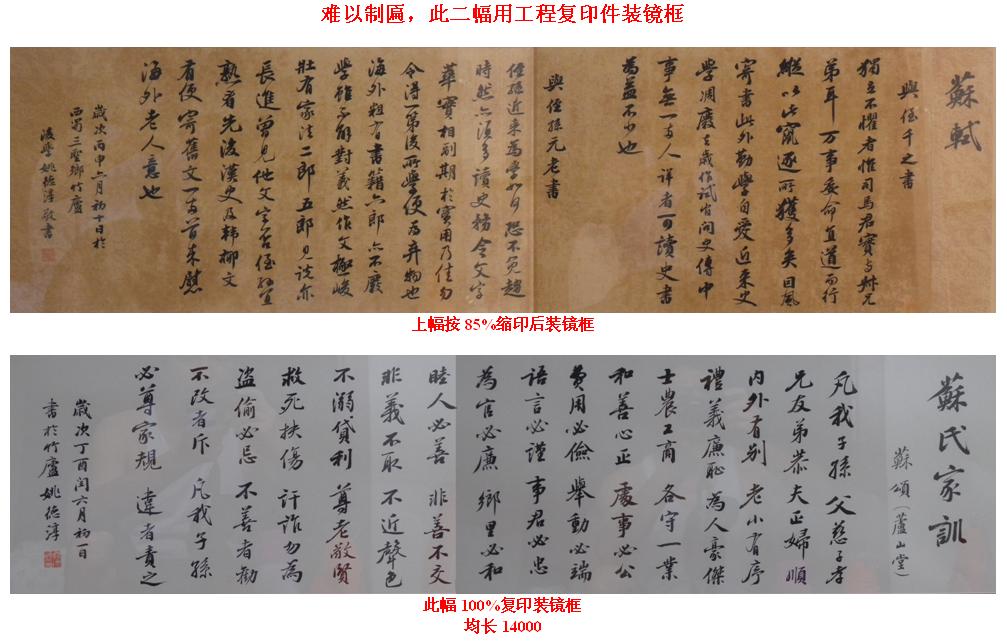 难以制匾，此二幅用工程复印件装镜框
蘇軾
與侄千之書
獨立不懼者惟司馬君實与叔兄
弟耳万事委命直道而行
縱以此竄逐所獲多矣因風
寄書此外勤學自愛近来史
學凋廢去歲作試官问史傳中
事無一二人詳者可讀史書
為益不少也
與侄孫元老書
侄孫近来為學何如恐不免趨
時然亦須多讀史務令文字
華實相副期於實用乃佳勿
令得一第後所學便為弃物也
海外粗有書籍六郎亦不廢
學雖不解對義然作文極峻
壯有家法二郎五郎見說亦
長進曾見他文字否侄孫宜
熟看先後漢史及韩柳文
有便寄舊文一兩首来慰
海外老人意也
歲次丙申六月初十日於
西蜀三聖鄉竹廬
後學姚德淳敬書
上幅按 85%缩印后装镜框
蘇氏家訓
蘇頌（蘆山堂）
凡我子孫 父慈子孝
兄友弟恭 夫正婦順
内外有别 老小有序
禮義廉恥 為人豪傑
士農工商 各守一業
和善心正 處事必公
費用必儉 舉動必端
語言必謹 事君必忠
為官必廉 鄉里必和
睦人必善 非善不交
非義不取 不近聲色
不溺貸利 尊老敬賢
救死扶傷 訐詐勿為
盜偷必忌 不善者勸
不改者斥 凡我子孫
必尊家規 違者責之
歲次丁酉闰六月初一日
書於竹廬 姚德淳
此幅 100%复印装镜框
均长 14000